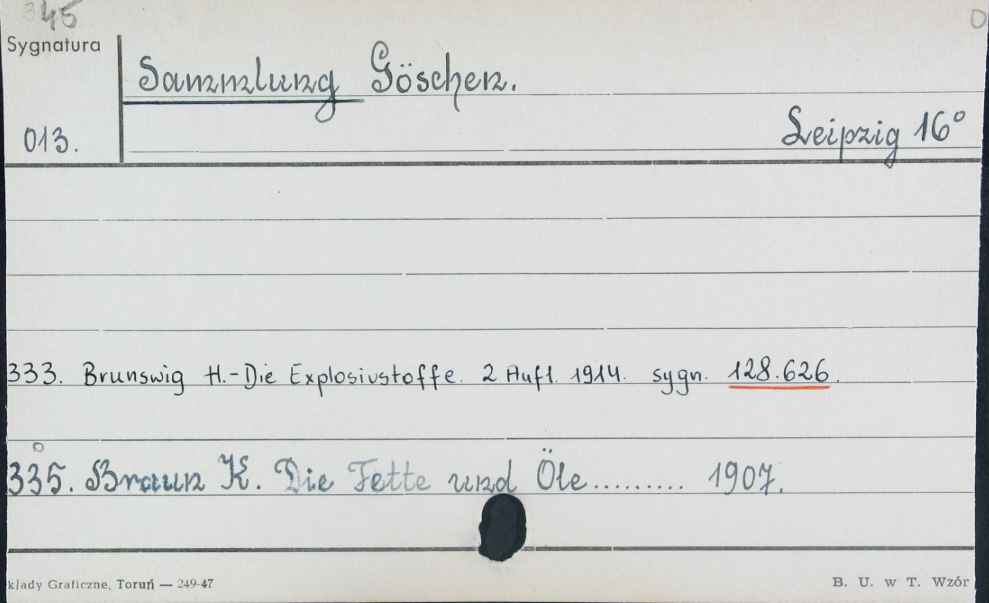 345
Sygnatura
Sammlung Göschen.
013.
Leipzig 16°
333. Brunswig H.-Die Explosivstoffe. 2 Aufl. 1914. sygn. 128.626.
335. Braun K. Die Fette und Öle......... 1907.
kłady Graficzne, Toruń — 249-47
B. U. w T. Wzór